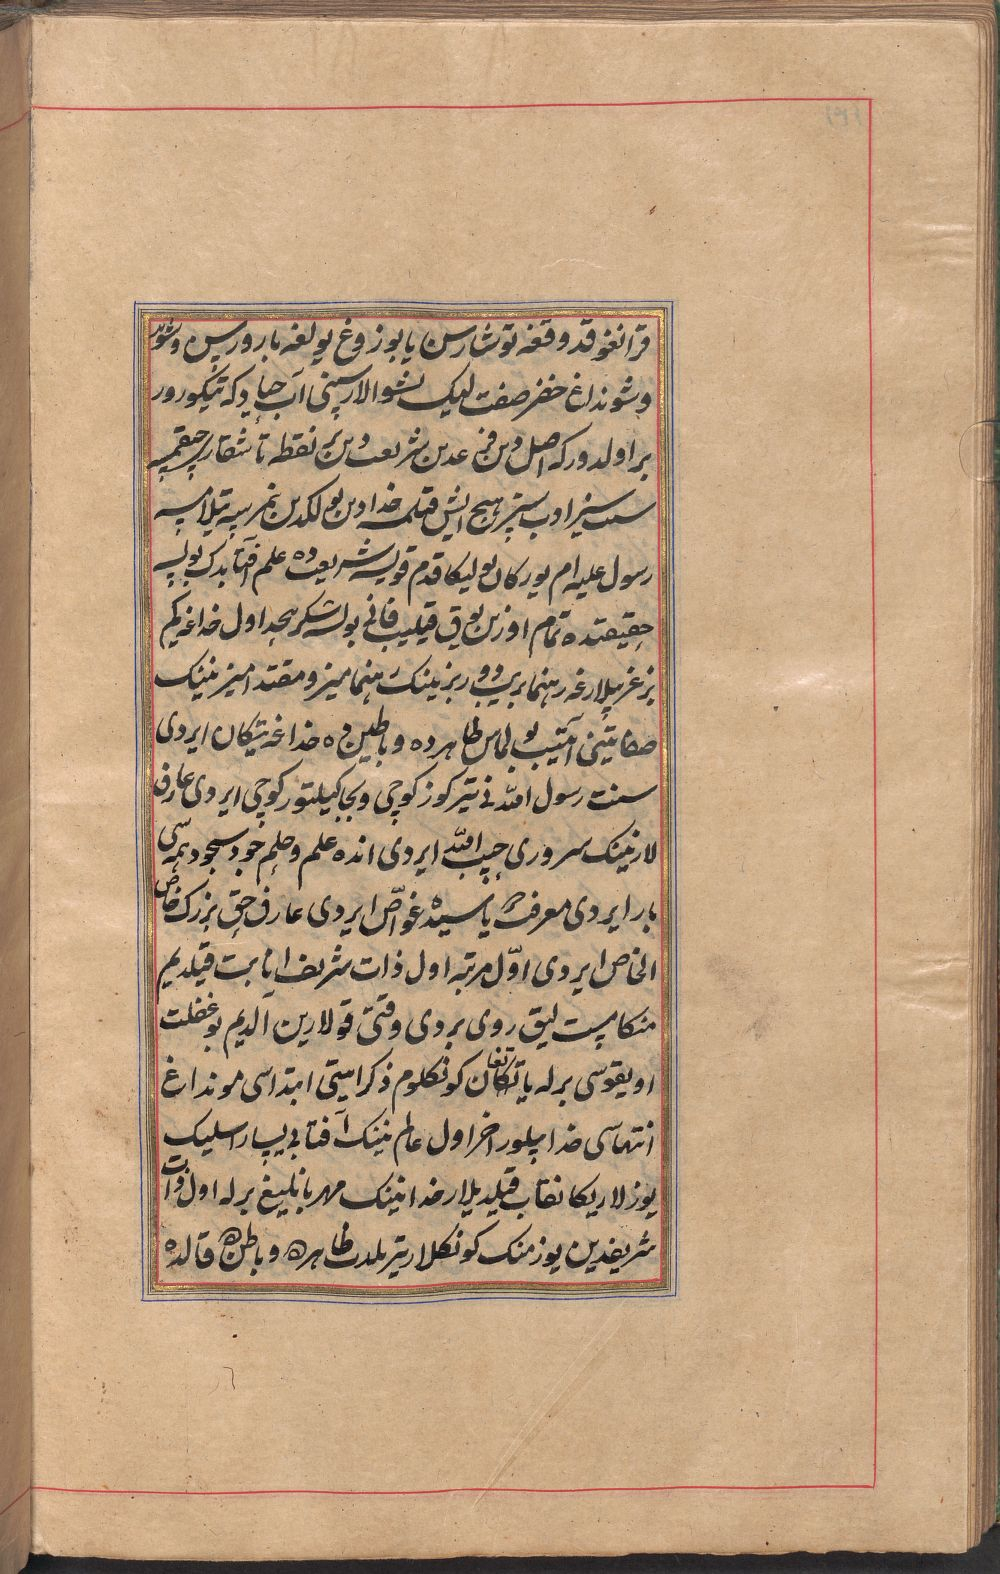 قرانغو قدوقغه توشارسن یا بوزوغ یولغه بارورسن و شوند
وشونداغ خضر صفت لیک نشوالارسینی آب حیاتدکه تیکورور
بر اولدورکه اصل دین فرعدین شریعت دین بر نقطه تاشقاری چیقمه
سبب سیز ادب سیز هیچ ایش قیلمه خدادین بولکدین نمرسه تیلامه
رسول علیه ام یورکان یولیکا قدم قویسه شریعت ده علم افتابدک بولسه
حقیقتده تمام اوزین یوق قیلیب فانی بولسه شکر بیحد اول خداغه کیم
بزغریبلارغه رهنما بریب دور بزنینک رهنمامیز و مقتدامیزنینک
صفاتینی آیتیب بولماس ظاهرده و باطین ده خداغه تیکان ایردی
سنت رسول الله نی تیرکوزکوچی و بجا کیلتورکوچی ایردی عارف
لارنینک سروری حبیب الله ایردی انده علم و حلم خود سجود همه سی
بار ایردی معرفت دریاسیده غواص ایردی عارف حق بزرک خاص
الخاص ایردی اول مرتبه اول ذات شریف انابت قیلدیم
منکا مست لیق روی بردی وقتی قولارین الدیم بو غفلت
اویقوسی برله یاتقان کونکلوم ذکر ایتی ابتداسی مونداغ
انتهاسی خدا بیلور اخر اول عالم نینک آفتابی یسار اسلیک
یوزلاریکا نقاب قیلدیلار خدانینک مهربانلیغ برله اول ذات
شریفدین یوز منک کونکلار تیریلدی ظاهره و باطن ده قالده